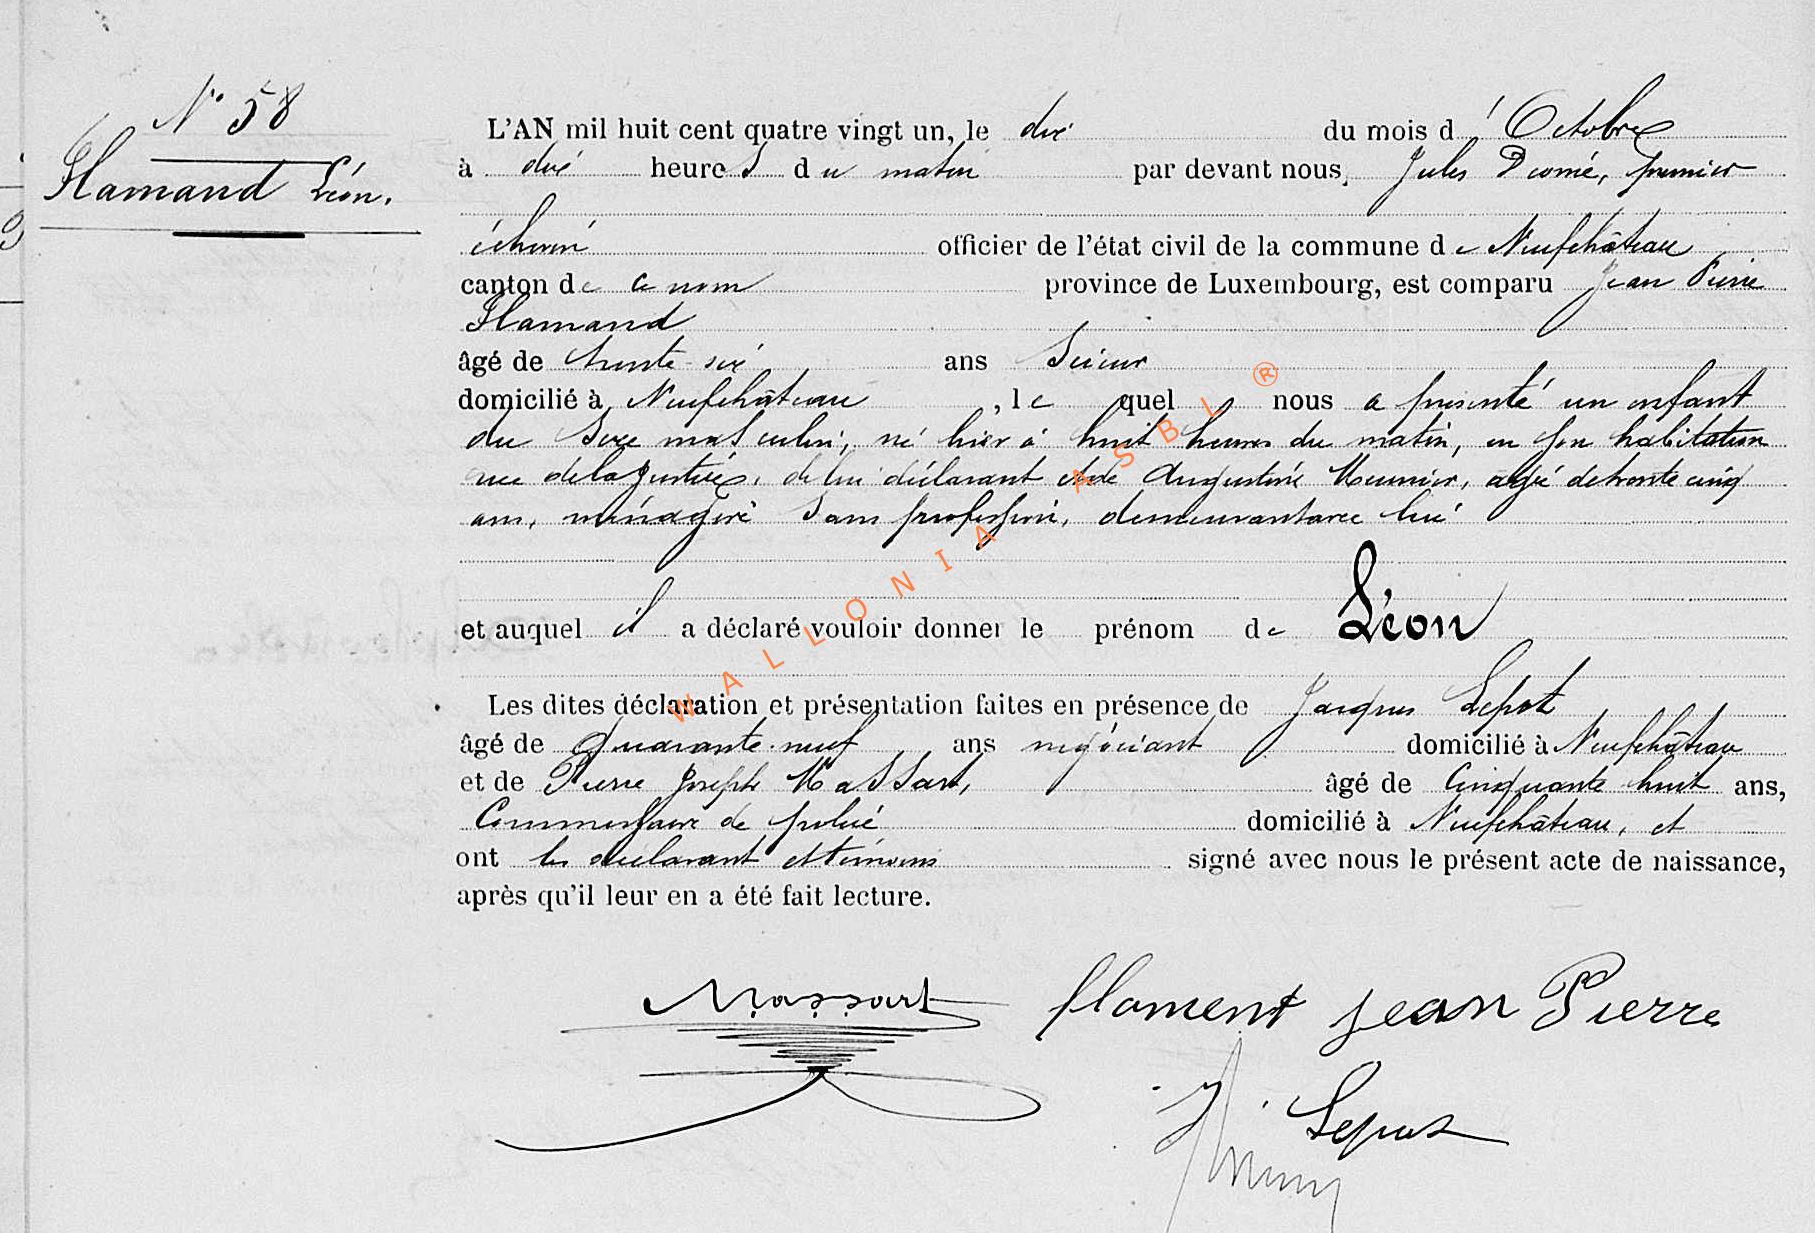 N° 58
Flamand Léon.
L'AN mil huit cent quatre vingt un, le dix du mois d'Octobre
à dix heures du matin par devant nous, Jules Domé, premier
échevin officier de l'état civil de la commune de Neufchâteau
canton de ce nom province de Luxembourg, est comparu Jean Pierre
Flamand
âgé de trente-six ans Scieur
domicilié à Neufchâteau, lequel nous a présenté un enfant
du Sexe masculin, né hier à huit heures du matin, en son habitation
rue de la Justice, de lui déclarant et de Augustine Meunier, agée de trente cinq
ans, ménagère Sans profession, demeurant avec lui
et auquel il a déclaré vouloir donner le prénom de Léon
Les dites déclaration et présentation faites en présence de Jacques Lepot
âgé de Quarante-neuf ans négociant domicilié à Neufchâteau
et de Pierre Joseph Massart, âgé de Cinquante huit ans,
Commissaire de police domicilié à Neufchâteau, et
ont les déclarant et témoins signé avec nous le présent acte de naissance,
après qu'il leur en a été fait lecture.
Massart flament jean Pierre
Lepot
WALLONIA ASBL ®